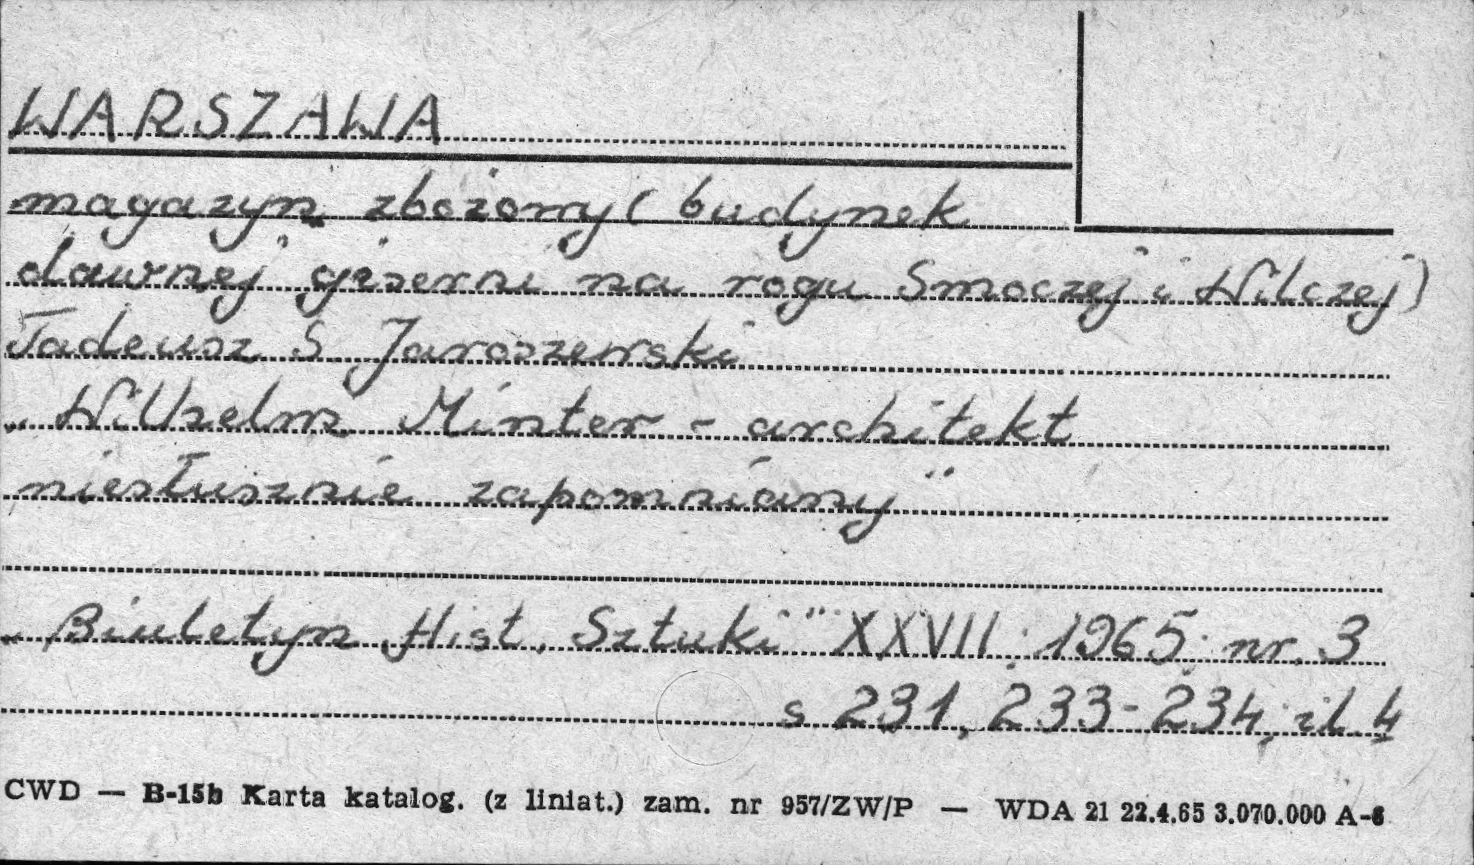 WARSZAWA
magazyn zbożowy (budynek
dawnej giserni na rogu Smoczej i Wilczej)
Tadeusz S Jaroszewski
„Wilhelm Minter - architekt
niesłusznie zapomniany"
„Biuletyn Hist. Sztuki" XXVII: 1965: nr. 3
s 231, 233-234; il. 4
CWD — B-15b Karta katalog. (z liniat.) zam. nr 957/ZW/P — WDA 21 22.4.65 3.070.000 A-6